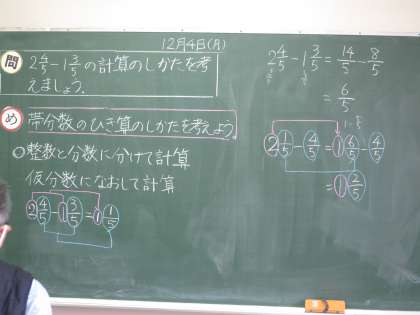 12月4日(月)
問 2 4/5 - 1 3/5 の計算のしかたを考
えましょう。
め 帯分数のひき算のしかたを考えよう。
整数と分数に分けて計算
仮分数になおして計算
2 4/5 - 1 3/5 = 1 1/5
2 4/5 - 1 3/5 = 14/5 - 8/5
= 6/5
2 1/5 - 4/5 = 1 6/5 - 4/5
= 1 2/5